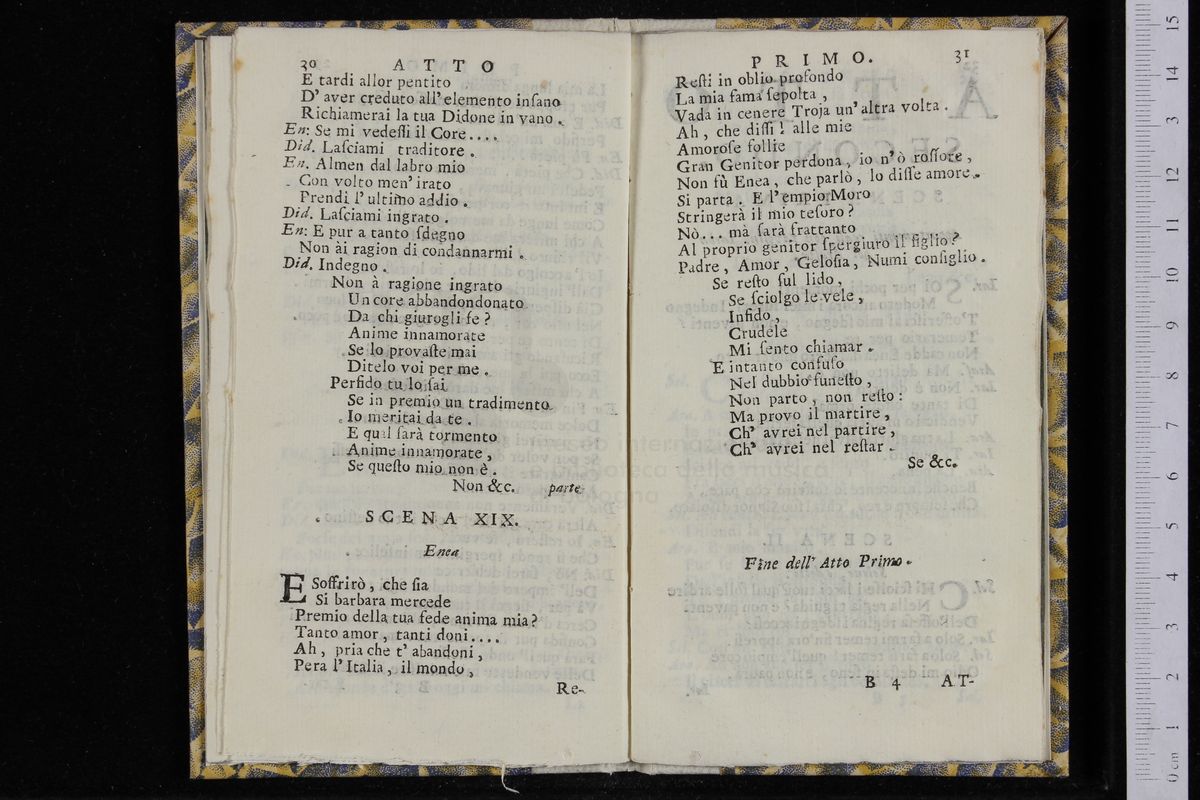 30 ATTO
E tardi allor pentito
D' aver creduto all' elemento inſano
Richiamerai la tua Didone in vano.
En: Se mi vedeſſi il Core....
Did. Laſciami traditore.
En. Almen dal labro mio
Con volto men' irato
Prendi l' ultimo addio.
Did. Laſciami ingrato.
En: E pur a tanto ſdegno
Non ài ragion di condannarmi.
Did. Indegno.
Non à ragione ingrato
Un core abbandondonato
Da chi giurogli fe?
Anime innamorate
Se lo provaſte mai
Ditelo voi per me.
Perfido tu lo ſai
Se in premio un tradimento
Io meritai da te.
E qual ſarà tormento
Anime innamorate,
Se queſto mio non è.
Non &c. parte
SCENA XIX.
Enea
E Soffrirò, che ſia
Si barbara mercede
Premio della tua fede anima mia?
Tanto amor, tanti doni....
Ah, pria che t' abandoni,
Pera l' Italia, il mondo,
Re-
PRIMO. 31
Reſti in oblio profondo
La mia fama ſepolta,
Vada in cenere Troja un' altra volta.
Ah, che diſſi! alle mie
Amoroſe follie
Gran Genitor perdona, io n' ò roſſore,
Non fù Enea, che parlò, lo diſſe amore.
Si parta. E l' empio Moro
Stringerà il mio teſoro?
Nò... mà ſarà frattanto
Al proprio genitor ſpergiuro il figlio?
Padre, Amor, Geloſia, Numi conſiglio.
Se reſto ſul lido,
Se ſciolgo le vele,
Infido,
Crudele
Mi ſento chiamar.
E intanto confuſo
Nel dubbio funeſto,
Non parto, non reſto:
Ma provo il martire,
Ch' avrei nel partire,
Ch' avrei nel reſtar.
Se &c.
Fine dell' Atto Primo.
B 4 AT-